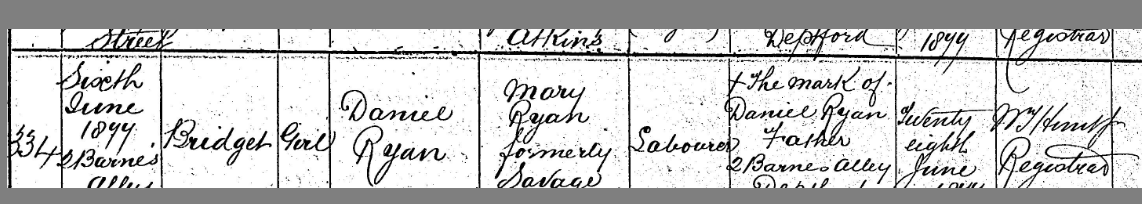 Street
Atkins
Deptford
1899
Registrar
334
Sixth
June
1899
2 Barnes
Alley
Bridget
Girl
Daniel
Ryan
Mary
Ryan
formerly
Savage
Labourer
X The mark of
Daniel Ryan
Father
2 Barnes Alley
Deptford
Twenty
eighth
June
Registrar